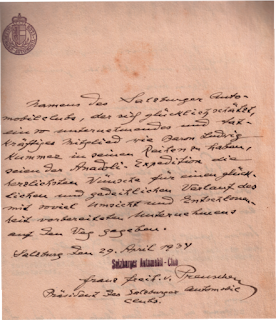 Namens des Salzburger Auto-
mobilclubs, der sich glücklich schätzt,
ein so unternehmendes und tat-
kräftiges Mitglied wie Herrn Ludwig
in seinen Reihen zu haben,
seien der Expedition die
herzlichsten Wünsche für einen glück-
lichen und gedeihlichen Verlauf des
mit soviel Umsicht und Entschlossen-
heit vorbereiteten Unternehmens
auf den Weg gegeben.
Salzburg den 29. April 1934
Salzburger Automobil-Club
Franz Freih. v. Preuschen
Präsident des Salzburger Automobil
clubs.